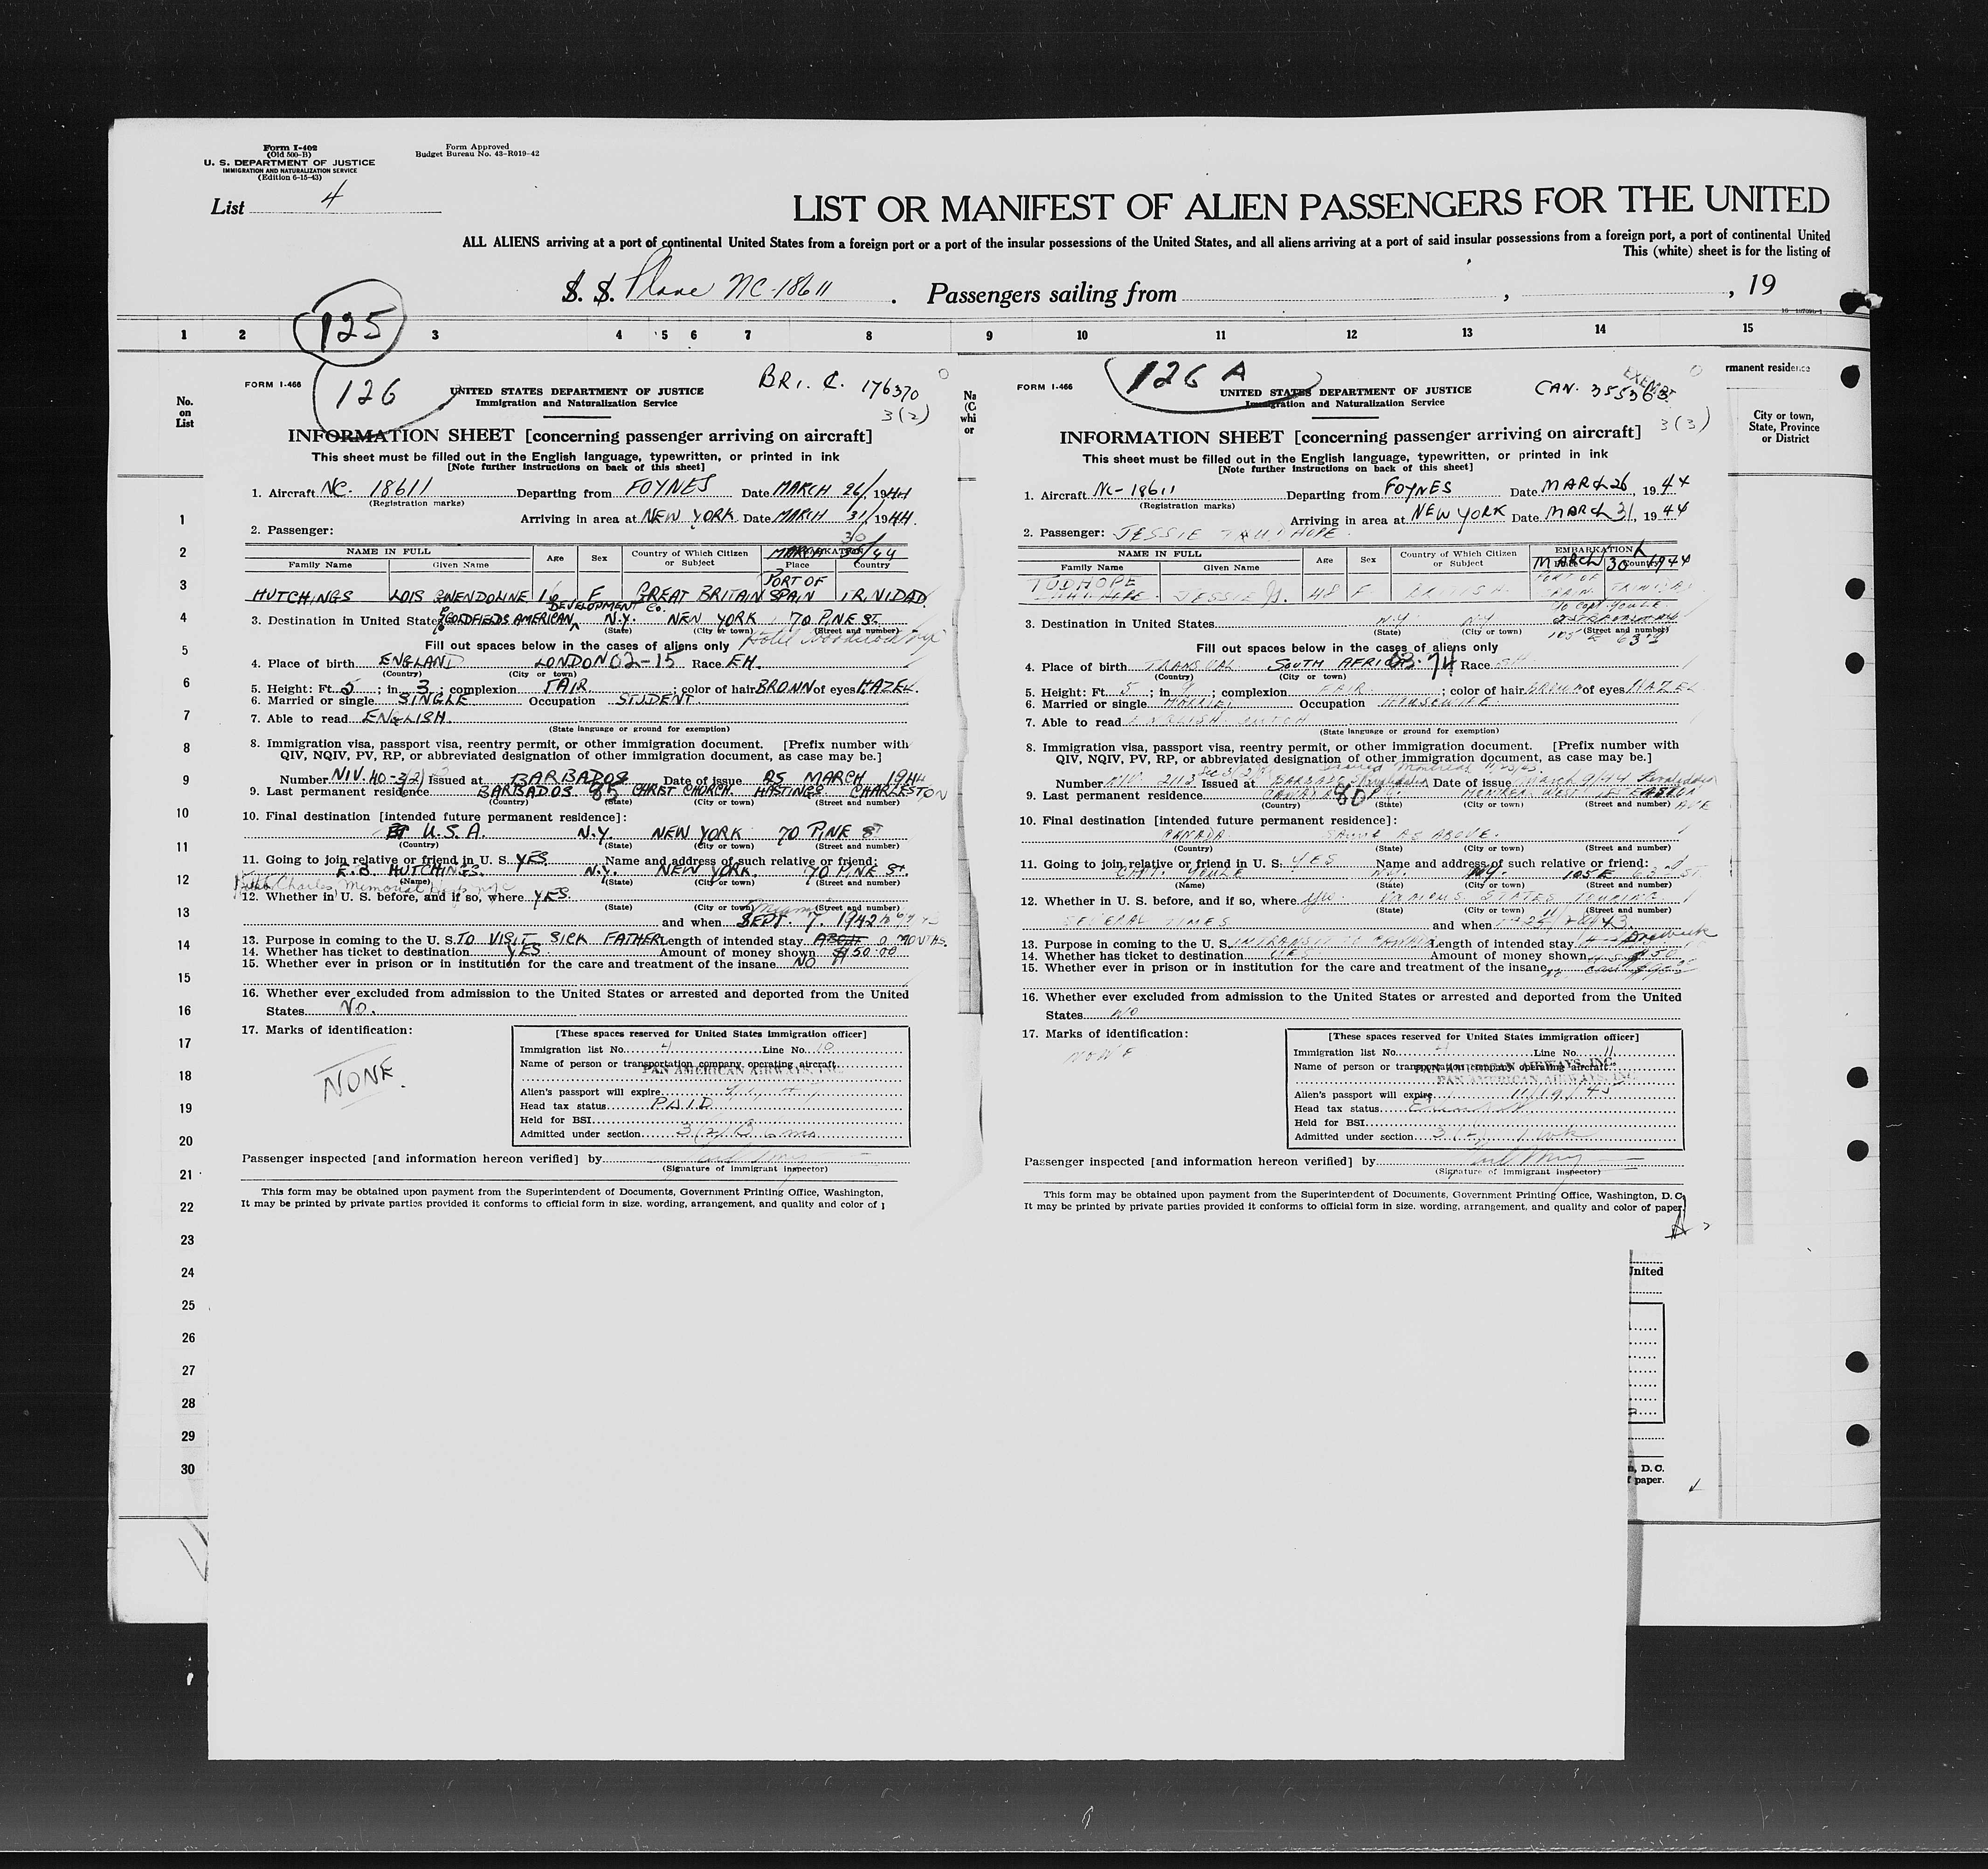 Form I-402
(Old 500-B)
U. S. DEPARTMENT OF JUSTICE
IMMIGRATION AND NATURALIZATION SERVICE
(Edition 6-15-43)
Form Approved
Budget Bureau No. 43-R019-42
List 4
LIST OR MANIFEST OF ALIEN PASSENGERS FOR THE UNITED
ALL ALIENS arriving at a port of continental United States from a foreign port or a port of the insular possessions of the United States, and all aliens arriving at a port of said insular possessions from a foreign port, a port of continental United
This (white) sheet is for the listing of
S. S. Plane NC-18611 . Passengers sailing from , , 19
125
1 2 3 4 5 6 7 8 9 10 11 12 13 14 15
No.
on
List
1
2
3
4
5
6
7
8
9
10
11
12
13
14
15
16
17
18
19
20
21
22
23
24
25
26
27
28
29
30
FORM I-466
126
UNITED STATES DEPARTMENT OF JUSTICE
Immigration and Naturalization Service
BRI. C. 176370
3(2)
INFORMATION SHEET [concerning passenger arriving on aircraft]
This sheet must be filled out in the English language, typewritten, or printed in ink
[Note further instructions on back of this sheet]
1. Aircraft NC- 18611 Departing from FOYNES Date MARCH 26/, 1944
(Registration marks)
Arriving in area at NEW YORK Date MARCH 31/, 1944.
2. Passenger:
NAME IN FULL Age Sex Country of Which Citizen or Subject
Family Name Given Name Place Country
HUTCHINGS LOIS GWENDOLINE 16 F GREAT BRITAIN PORT OF SPAIN TRINIDAD
3. Destination in United States GOLDFIELDS AMERICAN DEVELOPMENT CO. N.Y. NEW YORK 70 PINE ST.
(State) (City or town) (Street and number)
Fill out spaces below in the cases of aliens only
4. Place of birth ENGLAND LONDON 02-15 Race EH.
(Country) (City or town)
5. Height: Ft. 5 ; in. 3 ; complexion FAIR ; color of hair BROWN of eyes HAZEL.
6. Married or single SINGLE Occupation STUDENT.
7. Able to read ENGLISH.
(State language or ground for exemption)
8. Immigration visa, passport visa, reentry permit, or other immigration document. [Prefix number with
QIV, NQIV, PV, RP, or abbreviated designation of other immigration document, as case may be.]
Number NIV. 40-3(2) Issued at BARBADOS Date of issue 25 MARCH 1944
9. Last permanent residence BARBADOS 85 CHRIST CHURCH. HASTINGS CHARLESTON
(Country) (State) (City or town) (Street and number)
10. Final destination [intended future permanent residence]:
U.S.A. N.Y. NEW YORK 70 PINE ST
(Country) (State) (City or town) (Street and number)
11. Going to join relative or friend in U. S. YES Name and address of such relative or friend:
E.B HUTCHINGS. N.Y. NEW YORK. 70 PINE ST.
(Name) (State) (City or town) (Street and number)
12. Whether in U. S. before, and if so, where YES.
(State) (City or town) (Street and number)
and when SEPT. 7. 1942
13. Purpose in coming to the U. S. TO VISIT SICK FATHER Length of intended stay MONTHS.
14. Whether has ticket to destination YES. Amount of money shown $150.00
15. Whether ever in prison or in institution for the care and treatment of the insane NO
16. Whether ever excluded from admission to the United States or arrested and deported from the United
States No.
17. Marks of identification:
NONE.
[These spaces reserved for United States immigration officer]
Immigration list No. 4 Line No. 10
Name of person or transportation company operating aircraft
PAN AMERICAN AIRWAYS, INC.
Alien's passport will expire
Head tax status PAID
Held for BSI
Admitted under section 3(2) B 6 mo
Passenger inspected [and information hereon verified] by
(Signature of immigrant inspector)
This form may be obtained upon payment from the Superintendent of Documents, Government Printing Office, Washington,
It may be printed by private parties provided it conforms to official form in size, wording, arrangement, and quality and color of
FORM I-466
126 A
UNITED STATES DEPARTMENT OF JUSTICE
Immigration and Naturalization Service
EXEMPT
CAN. 355363
3(3)
INFORMATION SHEET [concerning passenger arriving on aircraft]
This sheet must be filled out in the English language, typewritten, or printed in ink
[Note further instructions on back of this sheet]
1. Aircraft NC-18611 Departing from FOYNES Date MARCH 26, 1944
(Registration marks)
Arriving in area at NEW YORK Date MARCH 31, 1944
2. Passenger: JESSIE
NAME IN FULL Age Sex Country of Which Citizen or Subject EMBARKATION
Family Name Given Name MARCH 30 1944
TUDHOPE JESSIE 48 F BRITISH PORT OF SPAIN. TRINIDAD
3. Destination in United States N.Y. N.Y.
(State) (City or town) (Street and number)
Fill out spaces below in the cases of aliens only
4. Place of birth TRANSVAAL SOUTH AFRICA Race
(Country) (City or town)
5. Height: Ft. 5 ; in. ; complexion FAIR ; color of hair BROWN of eyes HAZEL
6. Married or single MARRIED Occupation HOUSEWIFE.
7. Able to read ENGLISH DUTCH
(State language or ground for exemption)
8. Immigration visa, passport visa, reentry permit, or other immigration document. [Prefix number with
QIV, NQIV, PV, RP, or abbreviated designation of other immigration document, as case may be.]
Number Issued at Date of issue March 9/44
9. Last permanent residence CANADA 80
(Country) (State) (City or town) (Street and number)
10. Final destination [intended future permanent residence]:
CANADA SAME AS ABOVE.
(Country) (State) (City or town) (Street and number)
11. Going to join relative or friend in U. S. YES Name and address of such relative or friend:
CAPT. YOULE N.Y. N.Y. 105 E 63rd ST.
(Name) (State) (City or town) (Street and number)
12. Whether in U. S. before, and if so, where Yes. VARIOUS STATES TOURING
(State) (City or town) (Street and number)
SEVERAL TIMES and when
13. Purpose in coming to the U. S. IN TRANSIT TO CANADA Length of intended stay One week
14. Whether has ticket to destination YES Amount of money shown
15. Whether ever in prison or in institution for the care and treatment of the insane No
16. Whether ever excluded from admission to the United States or arrested and deported from the United
States No
17. Marks of identification:
NONE
[These spaces reserved for United States immigration officer]
Immigration list No. 4 Line No. 11
Name of person or transportation company operating aircraft
PAN AMERICAN AIRWAYS, INC.
Alien's passport will expire 11/19/45
Head tax status
Held for BSI
Admitted under section 3(2) 1 wk
Passenger inspected [and information hereon verified] by
(Signature of immigrant inspector)
This form may be obtained upon payment from the Superintendent of Documents, Government Printing Office, Washington, D. C.
It may be printed by private parties provided it conforms to official form in size, wording, arrangement, and quality and color of paper.
rmanent residence
City or town,
State, Province
or District
United
, D. C.
paper.